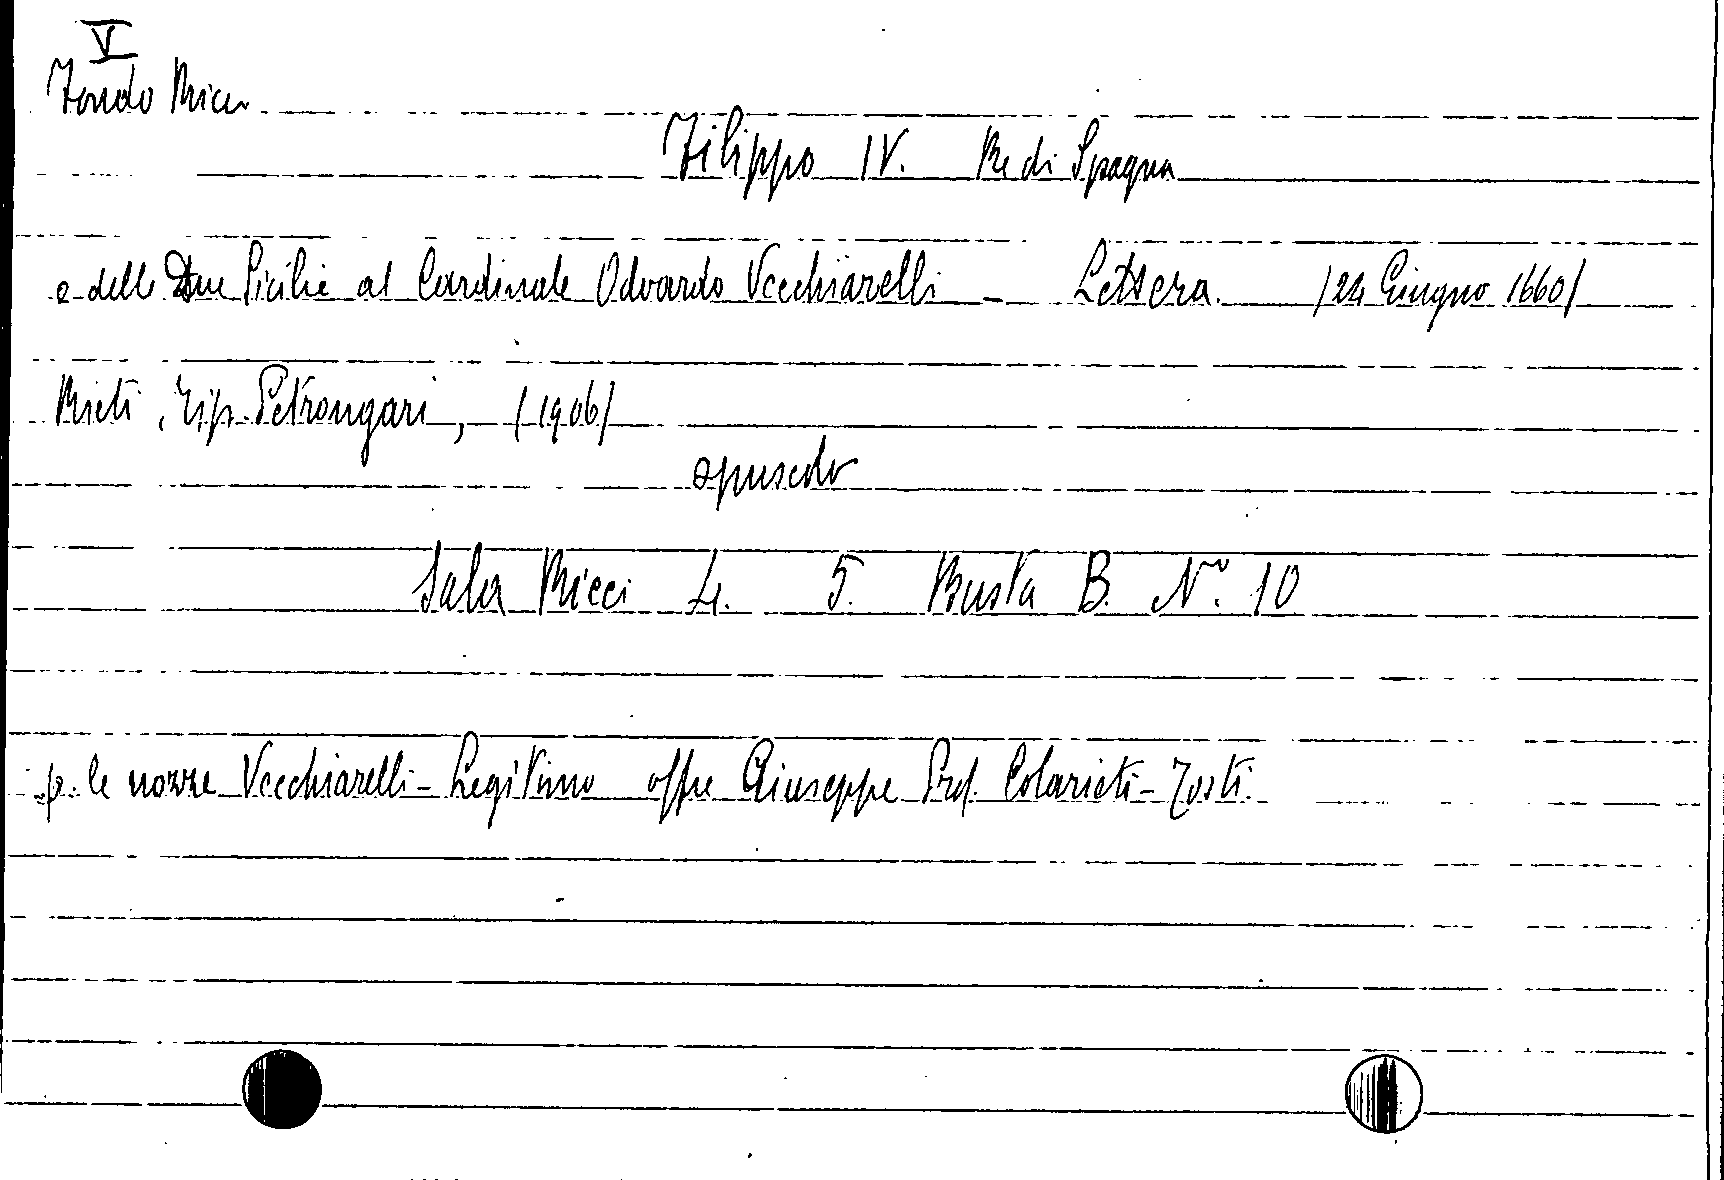 V
Fondo Ricci
Filippo IV. Re di Spagna
e delle Due Sicilie al Cardinale Odoardo Vecchiarelli - Lettera. (24 Giugno 1660)
Rieti, Tip. Petrongari, (1906)
opuscolo
Sala Ricci 4. 5. Busta B. N° 10
p. le nozze Vecchiarelli-Legitimo offre Giuseppe Prof. Colarieti-Tosti.